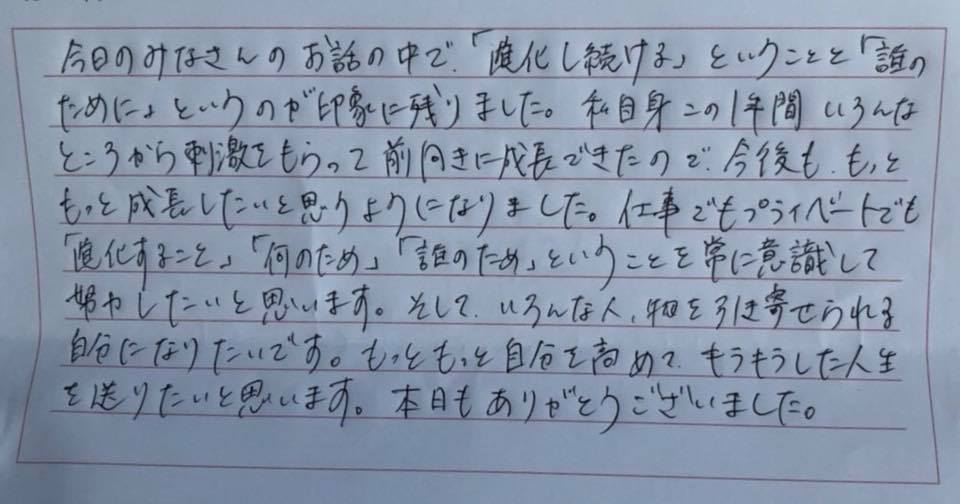 今日のみなさんのお話の中で、「進化し続ける」ということと「誰の
ために」というのが印象に残りました。私自身この1年間いろんな
ところから刺激をもらって前向きに成長できたので、今後も、もっと
もっと成長したいと思うようになりました。仕事でもプライベートでも
「進化すること」「何のため」「誰のため」ということを常に意識して
努力したいと思います。そして、いろんな人、物を引き寄せられる
自分になりたいです。もっともっと自分を高めて、もうもうした人生
を送りたいと思います。本日もありがとうございました。